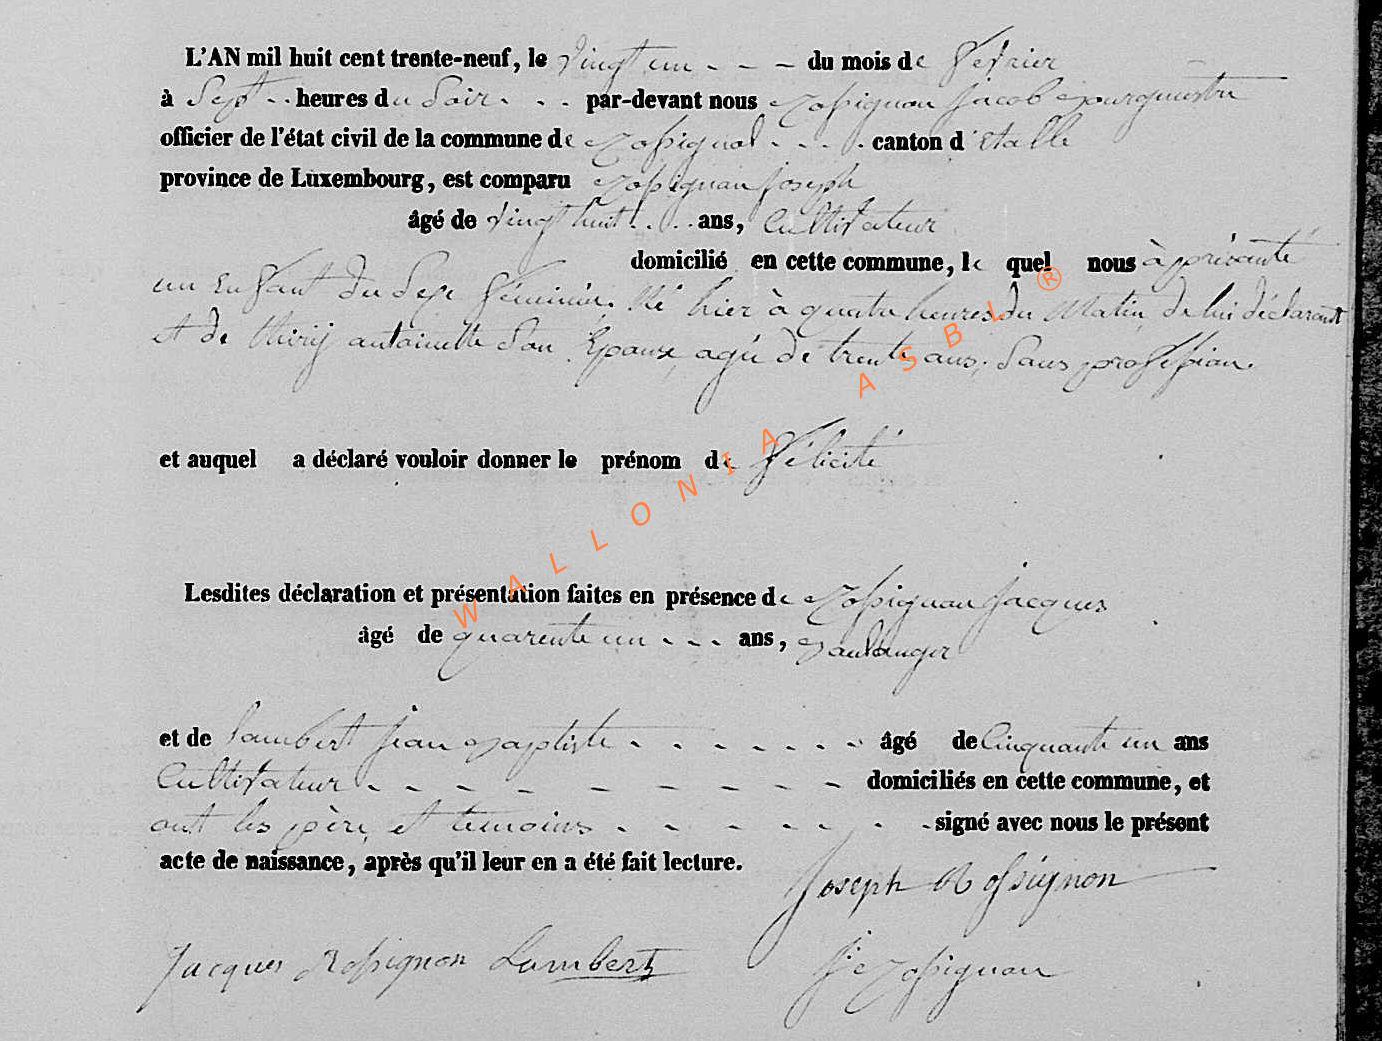 L'AN mil huit cent trente-neuf, le vingt un - - - du mois de fevrier
à Sept - - heures du Soir - - - par-devant nous Rossignon Jacob Bourguestre
officier de l'état civil de la commune de Rossignol - - - - canton d'Etalle
province de Luxembourg, est comparu Rossignon Joseph
âgé de vingt huit - - - ans, Cultivateur
domicilié en cette commune, le quel nous à présenté
un Enfant du Sexe féminin, Né hier à quatre heures du Matin, de lui déclarant
et de Thiry antoinette Son Epouse, agé de trente ans, Sans profession.
et auquel a déclaré vouloir donner le prénom de félicité
Lesdites déclaration et présentation faites en présence de Rossignon Jacques
âgé de quarente un - - - ans, Boulanger
et de Lambert Jean Baptiste - - - - - - - âgé de Cinquante un ans
Cultivateur - - - - - - - - - - domiciliés en cette commune, et
ont les père et temoins - - - - - - - signé avec nous le présent
acte de naissance, après qu'il leur en a été fait lecture.
Joseph Rossignon
Jacques Rossignon Lambert J Rossignon
WALLONIA ASBL ®